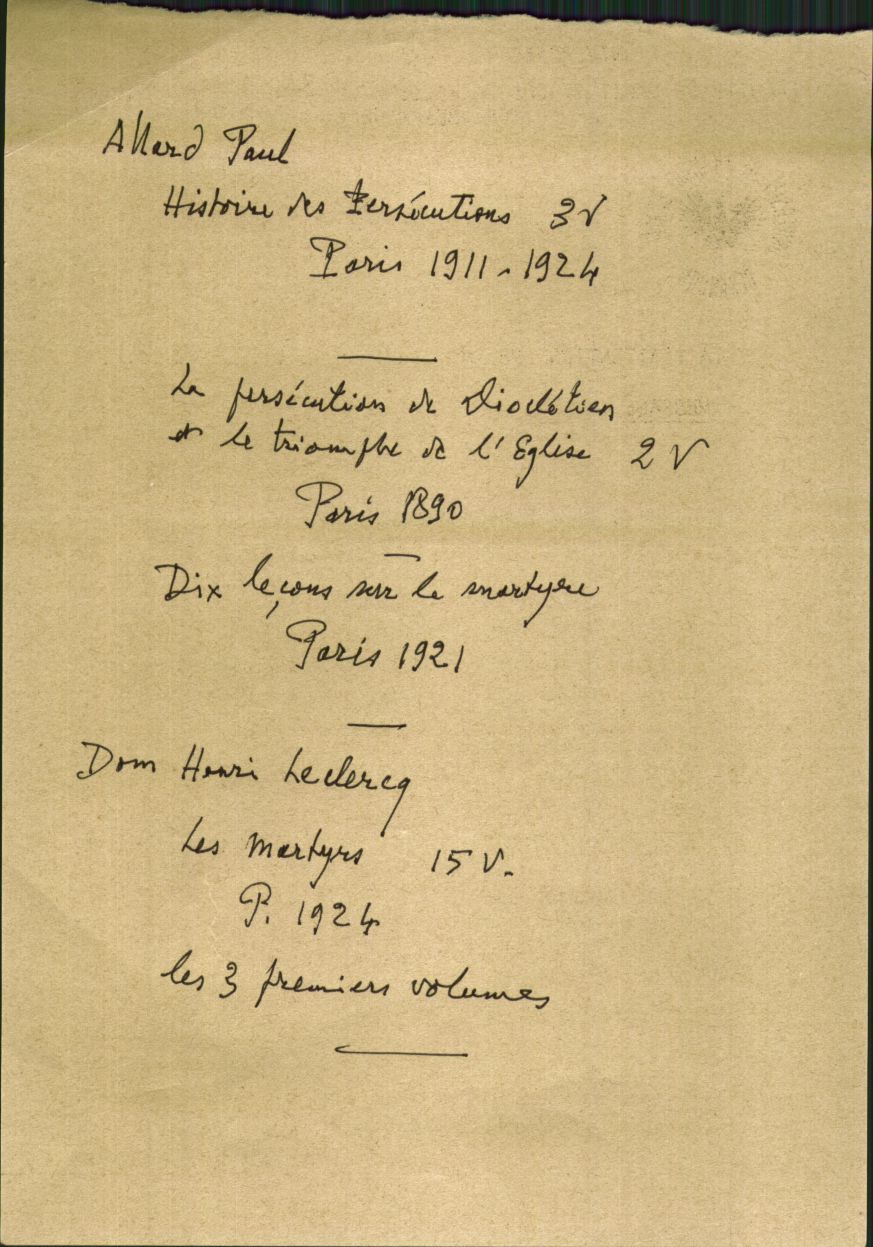 Allard Paul
Histoire des Persécutions 3 V
Paris 1911 - 1924
La persécution de Dioclétien
et le triomphe de l'Eglise 2 V
Paris 1890
Dix leçons sur le martyre
Paris 1921
Dom Henri Leclercq
Les Martyrs 15 V.
P. 1924
les 3 premiers volumes